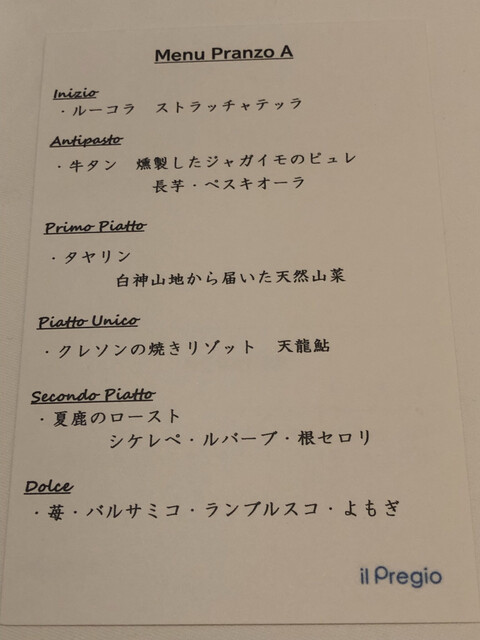 Menu Pranzo A
Inizio
・ルーコラ　ストラッチャテッラ
Antipasto
・牛タン　燻製したジャガイモのピュレ
長芋・ペスキオーラ
Primo Piatto
・タヤリン
白神山地から届いた天然山菜
Piatto Unico
・クレソンの焼きリゾット　天龍鮎
Secondo Piatto
・夏鹿のロースト
シケレペ・ルバーブ・根セロリ
Dolce
・苺・バルサミコ・ランブルスコ・よもぎ
il Pregio